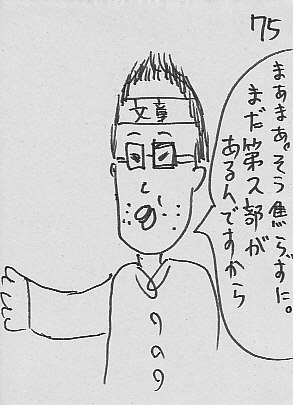 75
まあまあ。そう焦らずに。
まだ第2部が
あるんですから
文章